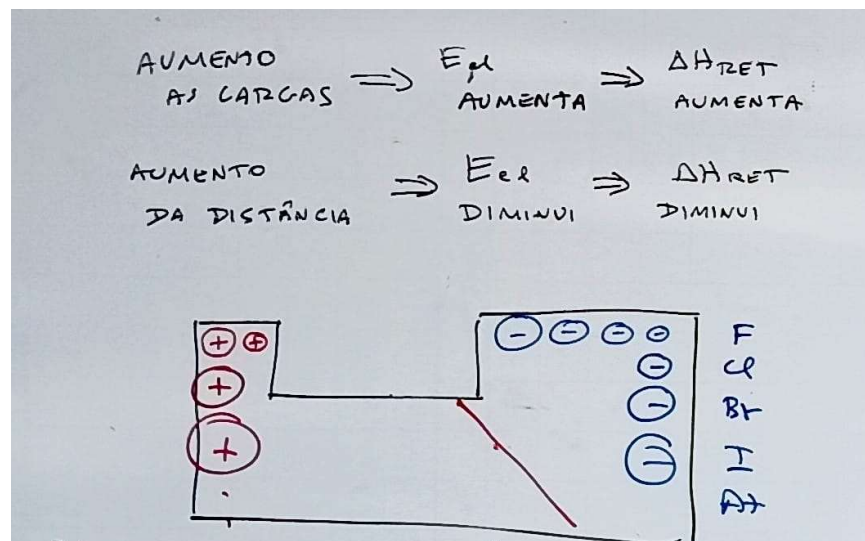 AUMENTO
AS CARGAS ⇒ Eel AUMENTA ⇒ ΔHRET AUMENTA
AUMENTO
DA DISTÂNCIA ⇒ Eel DIMINUI ⇒ ΔHRET DIMINUI
+ + - - - - F
+ - Cl
+ - Br
- I
At